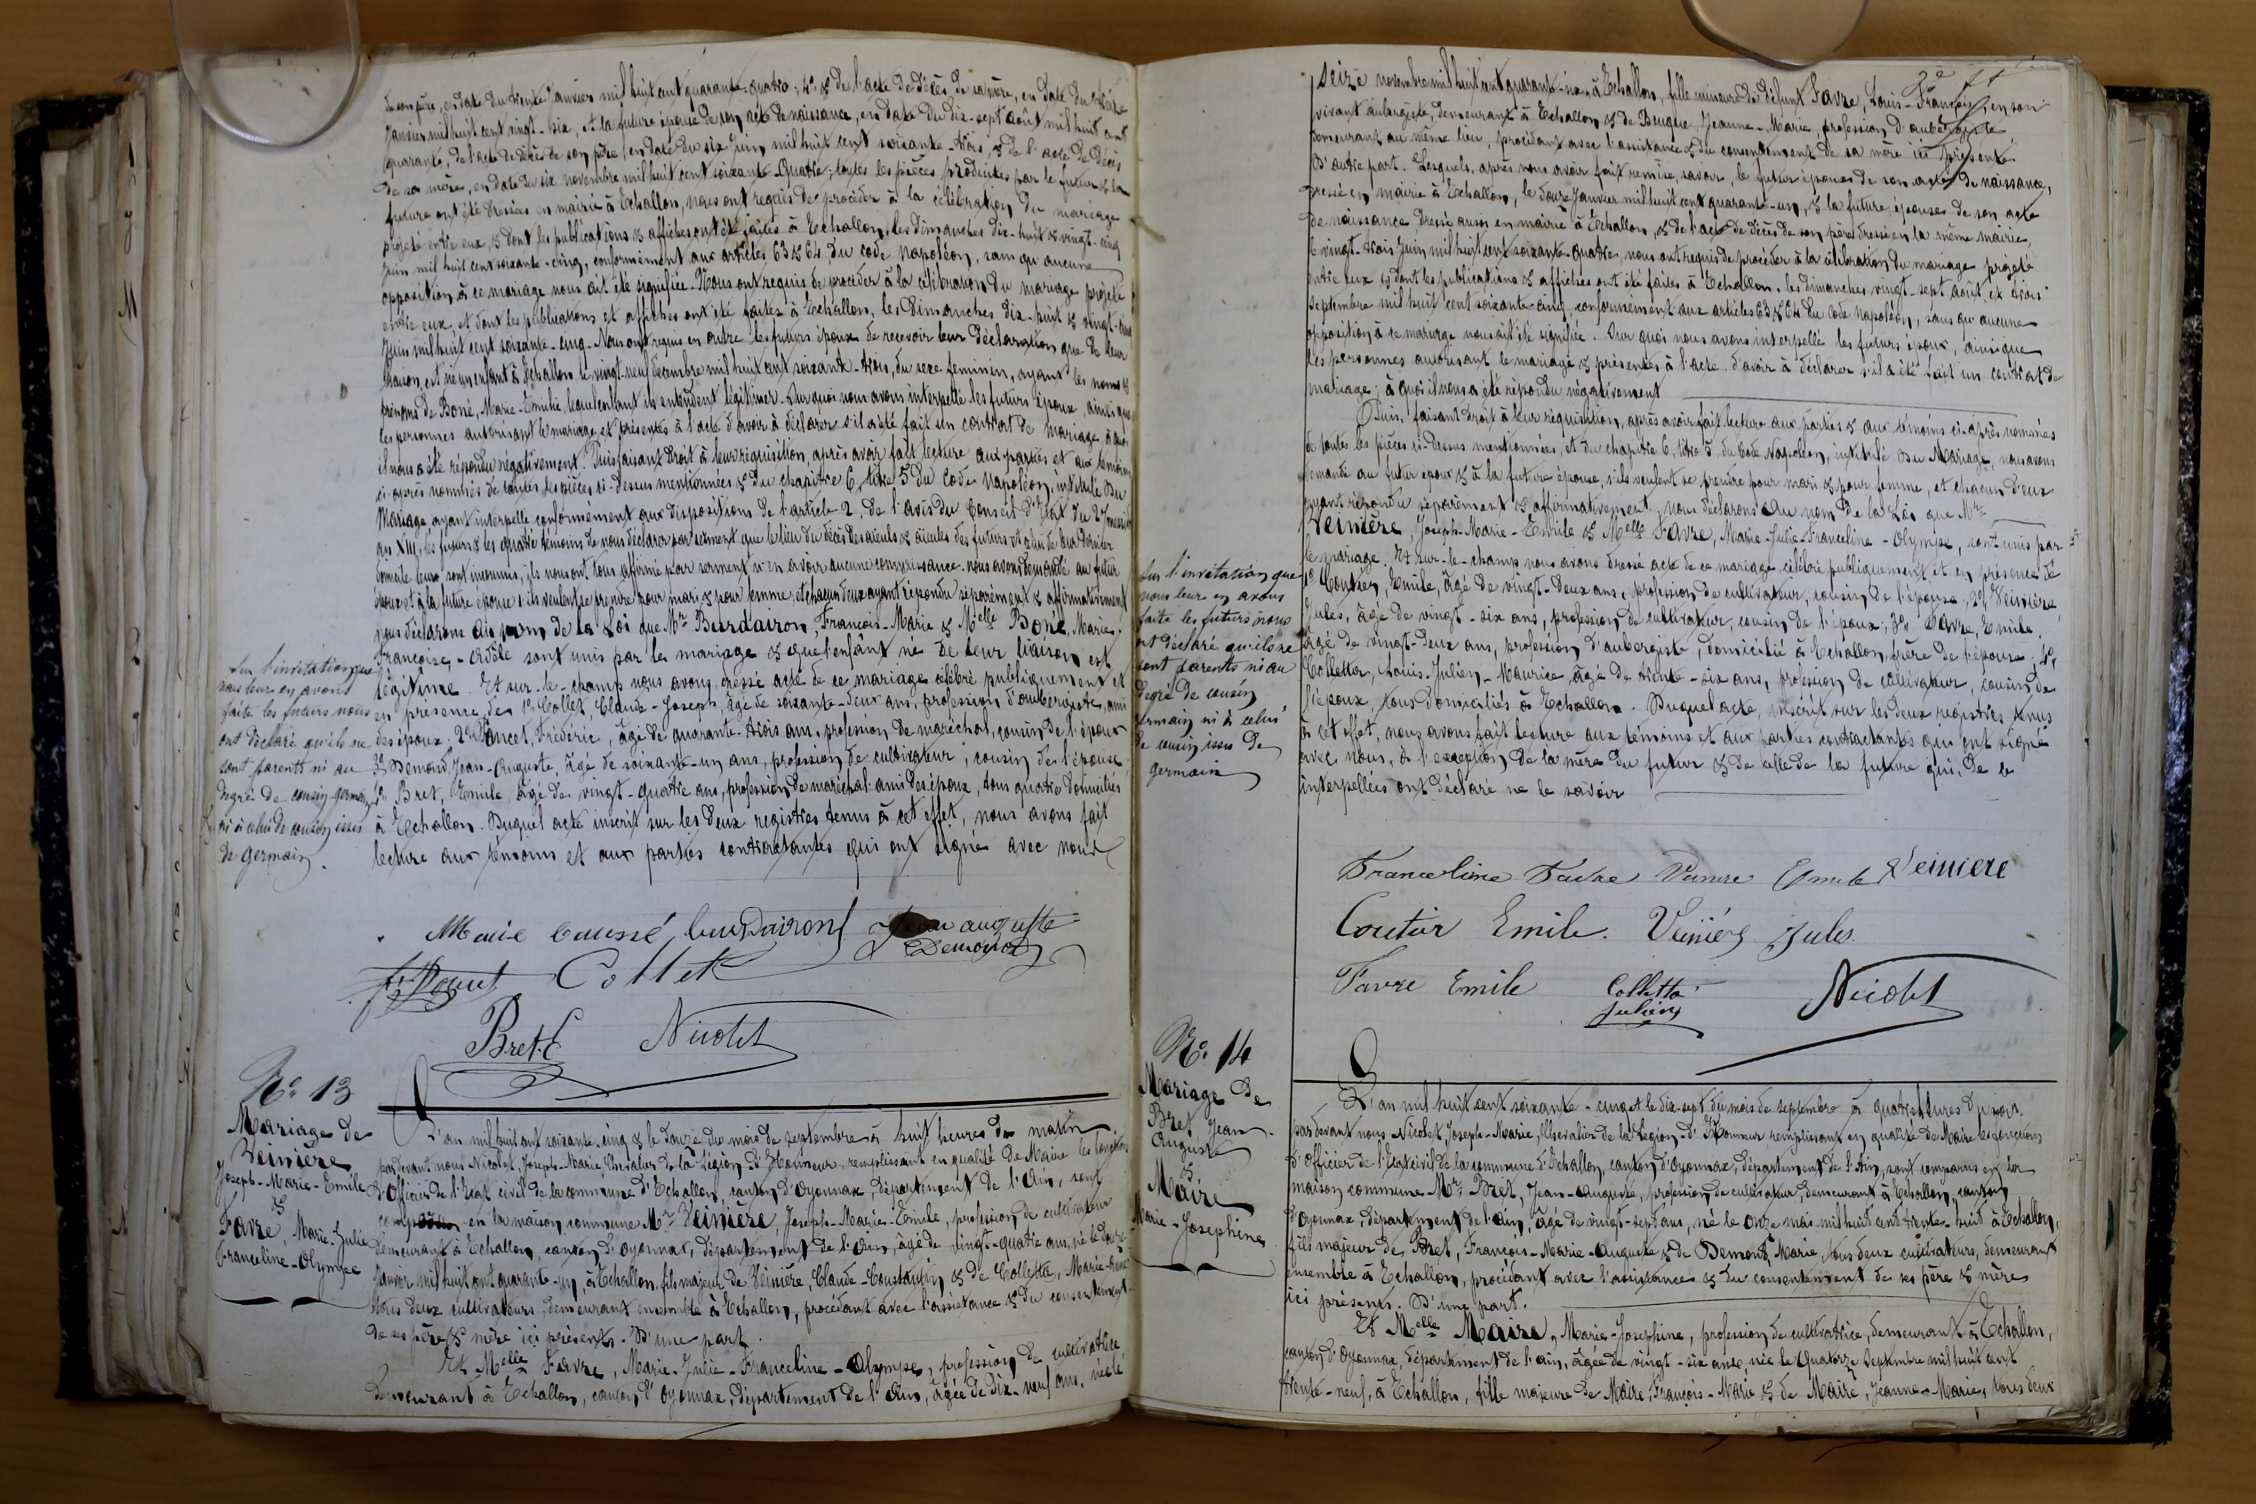 de son père, en date du trente janvier mil huit cent quarante-quatre; 4° & de l'acte de décès de sa mère, en date du
janvier mil huit cent vingt-six, et la future épouse de son acte de naissance, en date du dix-sept août mil huit cent
quarante, de l'acte de décès de son père, en date du six juin mil huit cent soixante-trois, & de l'acte de décès
de sa mère, en date du six novembre mil huit cent soixante-quatre; toutes les pièces produites par le futur & la
future ont été dressées en mairie à Echallon, nous ont requis de procéder à la célébration du mariage
projeté entre eux, & dont les publications & affiches ont été faites à Echallon, les dimanches dix-huit & vingt-cinq
juin mil huit cent soixante-cinq, conformément aux articles 63 & 64 du code napoléon, sans qu'aucune
opposition à ce mariage nous ait été signifiée. Nous ont requis de procéder à la célébration du mariage projeté
entre eux, et dont les publications et affiches ont été faites à Echallon, les dimanches dix-huit & vingt-cinq
juin mil huit cent soixante-cinq. Nous ont requis en outre les futurs époux de recevoir leur déclaration que de leur
liaison, est né un enfant à Echallon le vingt-neuf décembre mil huit cent soixante-trois, du sexe féminin, ayant les noms &
prénoms de Boné, Marie-Emilie, lequel enfant ils entendent légitimer. Sur quoi nous avons interpellé les futurs époux, ainsi que
les personnes autorisant le mariage et présentes à l'acte d'avoir à déclarer s'il a été fait un contrat de mariage, à quoi
il nous a été répondu négativement. Puis faisant droit à leur réquisition, après avoir fait lecture aux parties et aux témoins
ci-après nommés de toutes les pièces ci-dessus mentionnées & du chapitre 6, titre 5 du code Napoléon, intitulé du
Mariage, ayant interpellé conformément aux dispositions de l'article 2, de l'avis du Conseil d'Etat du 27 messidor
an XIII, les futurs & les quatre témoins de nous déclarer par serment que le lieu du décès des aïeuls & aïeules des futurs et celui de leur dernier
domicile leur sont inconnus, ils nous ont tous affirmé par serment n'en avoir aucune connaissance. nous avons demandé au futur
époux et à la future épouse s'ils veulent se prendre pour mari & pour femme, et chacun d'eux ayant répondu séparément & affirmativement
nous déclarons au nom de la Loi que Mr Burdairon, François-Marie & Melle Boné, Marie-
Françoise-Adèle sont unis par le mariage & que l'enfant né de leur liaison est
légitime. Et sur-le-champ nous avons dressé acte de ce mariage célébré publiquement et
en présence de 1° Collet, Claude-Joseph, âgé de soixante-deux ans, profession d'aubergiste, ami
des époux. 2° Poncet, Frédéric, âgé de quarante-trois ans, profession de maréchal, cousin de l'époux
3° Demond, Jean-Auguste, âgé de soixante-un ans, profession de cultivateur, cousin de l'épouse
4° Bret, Emile, âgé de vingt-quatre ans, profession de maréchal ami des époux, tous quatre domiciliés
à Echallon. Duquel acte inscrit sur les deux registres tenus à cet effet, nous avons fait
lecture aux témoins et aux parties contractantes qui ont signé avec nous
Sur l'invitation que
nous leur en avons
faite les futurs nous
ont déclaré qu'ils ne
sont parents ni au
degré de cousin germain
ni à celui de cousin issus
de germain.
Jean auguste
Demond
Collet
Bret. E Nicolet
N° 13
Mariage de
Veinière
Joseph-Marie-Emile
&
Favre, Marie-Julie
Franceline-Olympe
L'an mil huit cent soixante-cinq & le douze du mois de septembre à huit heures du matin
pardevant nous Nicolet, Joseph-Marie, Chevalier de la Légion d'Honneur, remplissant en qualité de Maire les fonctions
d'Officier de l'Etat civil de la commune d'Echallon, canton d'Oyonnax, département de l'Ain, sont
en la maison commune Mr Veinière, Joseph-Marie-Emile, profession de cultivateur
demeurant à Echallon, canton d'Oyonnax, département de l'Ain, âgé de vingt-quatre ans, né le douze
janvier mil huit cent quarante-un, à Echallon, fils majeur de Veinière, Claude-Constantin & de Colletta, Marie-
tous deux cultivateurs, demeurant ensemble à Echallon, procédant avec l'assistance & du consentement
de ses père & mère ici présents. D'une part.
Et Melle Favre, Marie-Julie-Franceline-Olympe, profession de cultivatrice,
demeurant à Echallon, canton d'Oyonnax, département de l'Ain, âgée de dix-neuf ans, née le
seize novembre mil huit cent quarante-, à Echallon, fille mineure de défunt Favre, Louis-François, en son
vivant aubergiste, demeurant à Echallon & de , Jeanne-Marie, profession d'aubergiste
demeurant au même lieu, procédant avec l'assistance & du consentement de sa mère ici présente
D'autre part. Lesquels, après nous avoir fait remise, savoir, le futur époux de son acte de naissance,
dressé en mairie à Echallon, le douze Janvier mil huit cent quarante-un, & la future épouse de son acte
de naissance dressé aussi en mairie à Echallon, & de l'acte de décès de son père dressé en la même mairie,
le vingt-trois juin mil huit cent soixante-quatre, nous ont requis de procéder à la célébration du mariage projeté
entre eux & dont les publications & affiches ont été faites à Echallon, les dimanches vingt-sept août et trois
septembre mil huit cent soixante-cinq conformément aux articles 63 & 64 du code Napoléon, sans qu'aucune
opposition à ce mariage nous ait été signifiée. Sur quoi nous avons interpellé les futurs époux, ainsi que
les personnes autorisant le mariage & présentes à l'acte, d'avoir à déclarer s'il a été fait un contrat de
mariage; à quoi il nous a été répondu négativement
Puis, faisant droit à leur réquisition, après avoir fait lecture aux parties & aux témoins ci-après nommés
de toutes les pièces ci-dessus mentionnées, et du chapitre 6, titre 5, du Code Napoléon, intitulé du Mariage, nous avons
demandé au futur époux & à la future épouse, s'ils veulent se prendre pour mari & pour femme, et chacun d'eux
ayant répondu séparément & affirmativement, nous déclarons Au nom de la Loi que Mr
Veinière, Joseph-Marie-Emile & Melle Favre, Marie-Julie-Franceline-Olympe, sont unis par
le mariage. Et sur-le-champ nous avons dressé acte de ce mariage célébré publiquement et en présence de
1° Coutier, Emile, âgé de vingt-deux ans, profession de cultivateur, cousin de l'épouse, 2° Veinière
Jules, âgé de vingt-six ans, profession de cultivateur, cousin de l'époux; 3° Favre, Emile
âgé de vingt-deux ans, profession d'aubergiste, domicilié à Echallon, frère de l'épouse; 4°
Colletta, Louis-Julien-Maurice, âgé de trente-six ans, profession de cultivateur, cousin de
l'époux, tous domiciliés à Echallon. Duquel acte, inscrit sur les deux registres tenus
à cet effet, nous avons fait lecture aux témoins et aux parties contractantes qui ont signé
avec nous, à l'exception de la mère du futur & de celle de la future qui, de ce
interpellées ont déclaré ne le savoir
Sur l'invitation que
nous leur en avons
faite les futurs nous
ont déclaré qu'ils ne
sont parents ni au
degré de cousin
germain ni à celui
de cousin issus de
germain
Franceline Favre Emile Veiniere
Coutier Emile. Veiniér Jules.
Favre Emile Colletta
Julien
Nicolet
N° 14
Mariage de
Bret Jean-
Auguste
&
Maire
Marie-Josephine
L'an mil huit cent soixante-cinq et le dix-sept du mois de septembre à quatre heures du soir.
pardevant nous Nicolet Joseph-Marie, Chevalier de la Légion d'Honneur remplissant en qualité de Maire les fonctions
d'Officier de l'Etat civil de la commune d'Echallon, canton d'Oyonnax, département de l'Ain, sont comparus en la
maison commune Mr Bret, Jean-Auguste, profession de cultivateur, demeurant à Echallon, canton
d'Oyonnax, département de l'Ain, âgé de vingt-sept ans, né le onze mai mil huit cent trente-huit à Echallon,
fils majeur de Bret, François-Marie-Auguste & de Demond, Marie tous deux cultivateurs, demeurant
ensemble à Echallon, procédant avec l'assistance & du consentement de ses père & mère
ici présents. D'une part.
Et Melle Maire, Marie-Josephine, profession de cultivatrice, demeurant à Echallon,
canton d'Oyonnax, département de l'Ain, âgée de vingt-six ans, née le quatorze septembre mil huit cent
trente-neuf, à Echallon, fille majeure de Maire, François-Marie & de Maire, Jeanne-Marie, tous deux